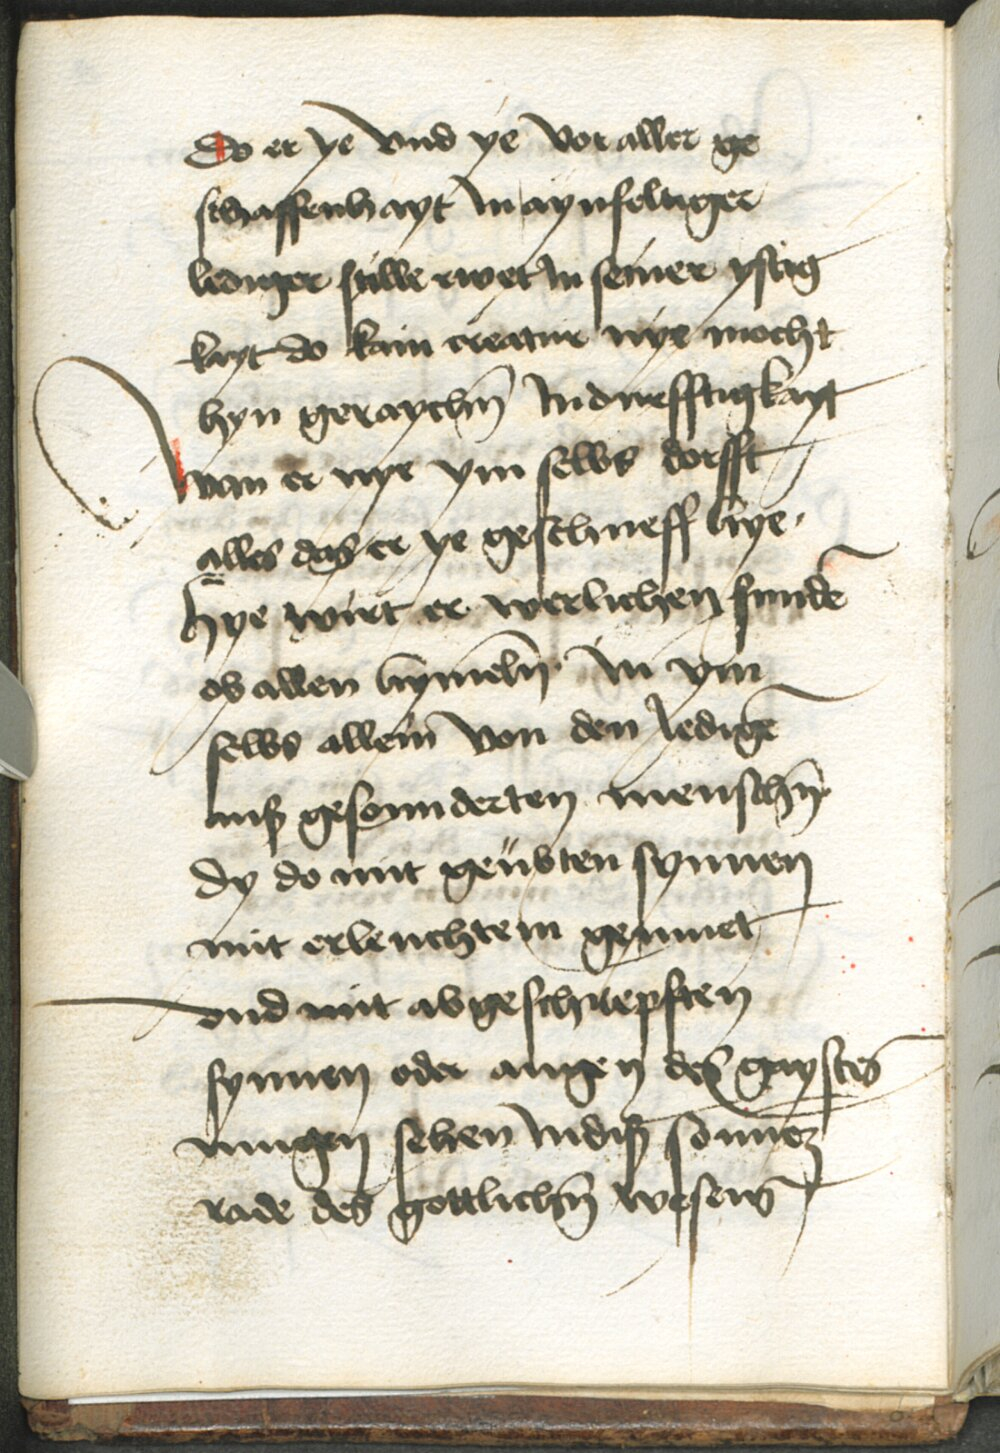 Do er ye vnd ye vor aller ge
schaffenhayt in aynfeltiger
lediger stille rwet in seiner ystig
kayt do kain creatur nye mocht
hyn geraychn̄ In durfftigkayt
wan er nye ym selbs dorfft
alles das er ye geschueff hye.
hye wirt er werlichen funde̅
ob allen hymeln̄ In ym
selbs allein von den ledige̅
auß gesunnderten menschn̄
dy do mit geübten synnen
mit erleuchtem gemuet
vnd mit abgeschrepften
synnen oder augen des gaystes
mugen sehen In diß sonnen
rade des gottlichn̄ wesens